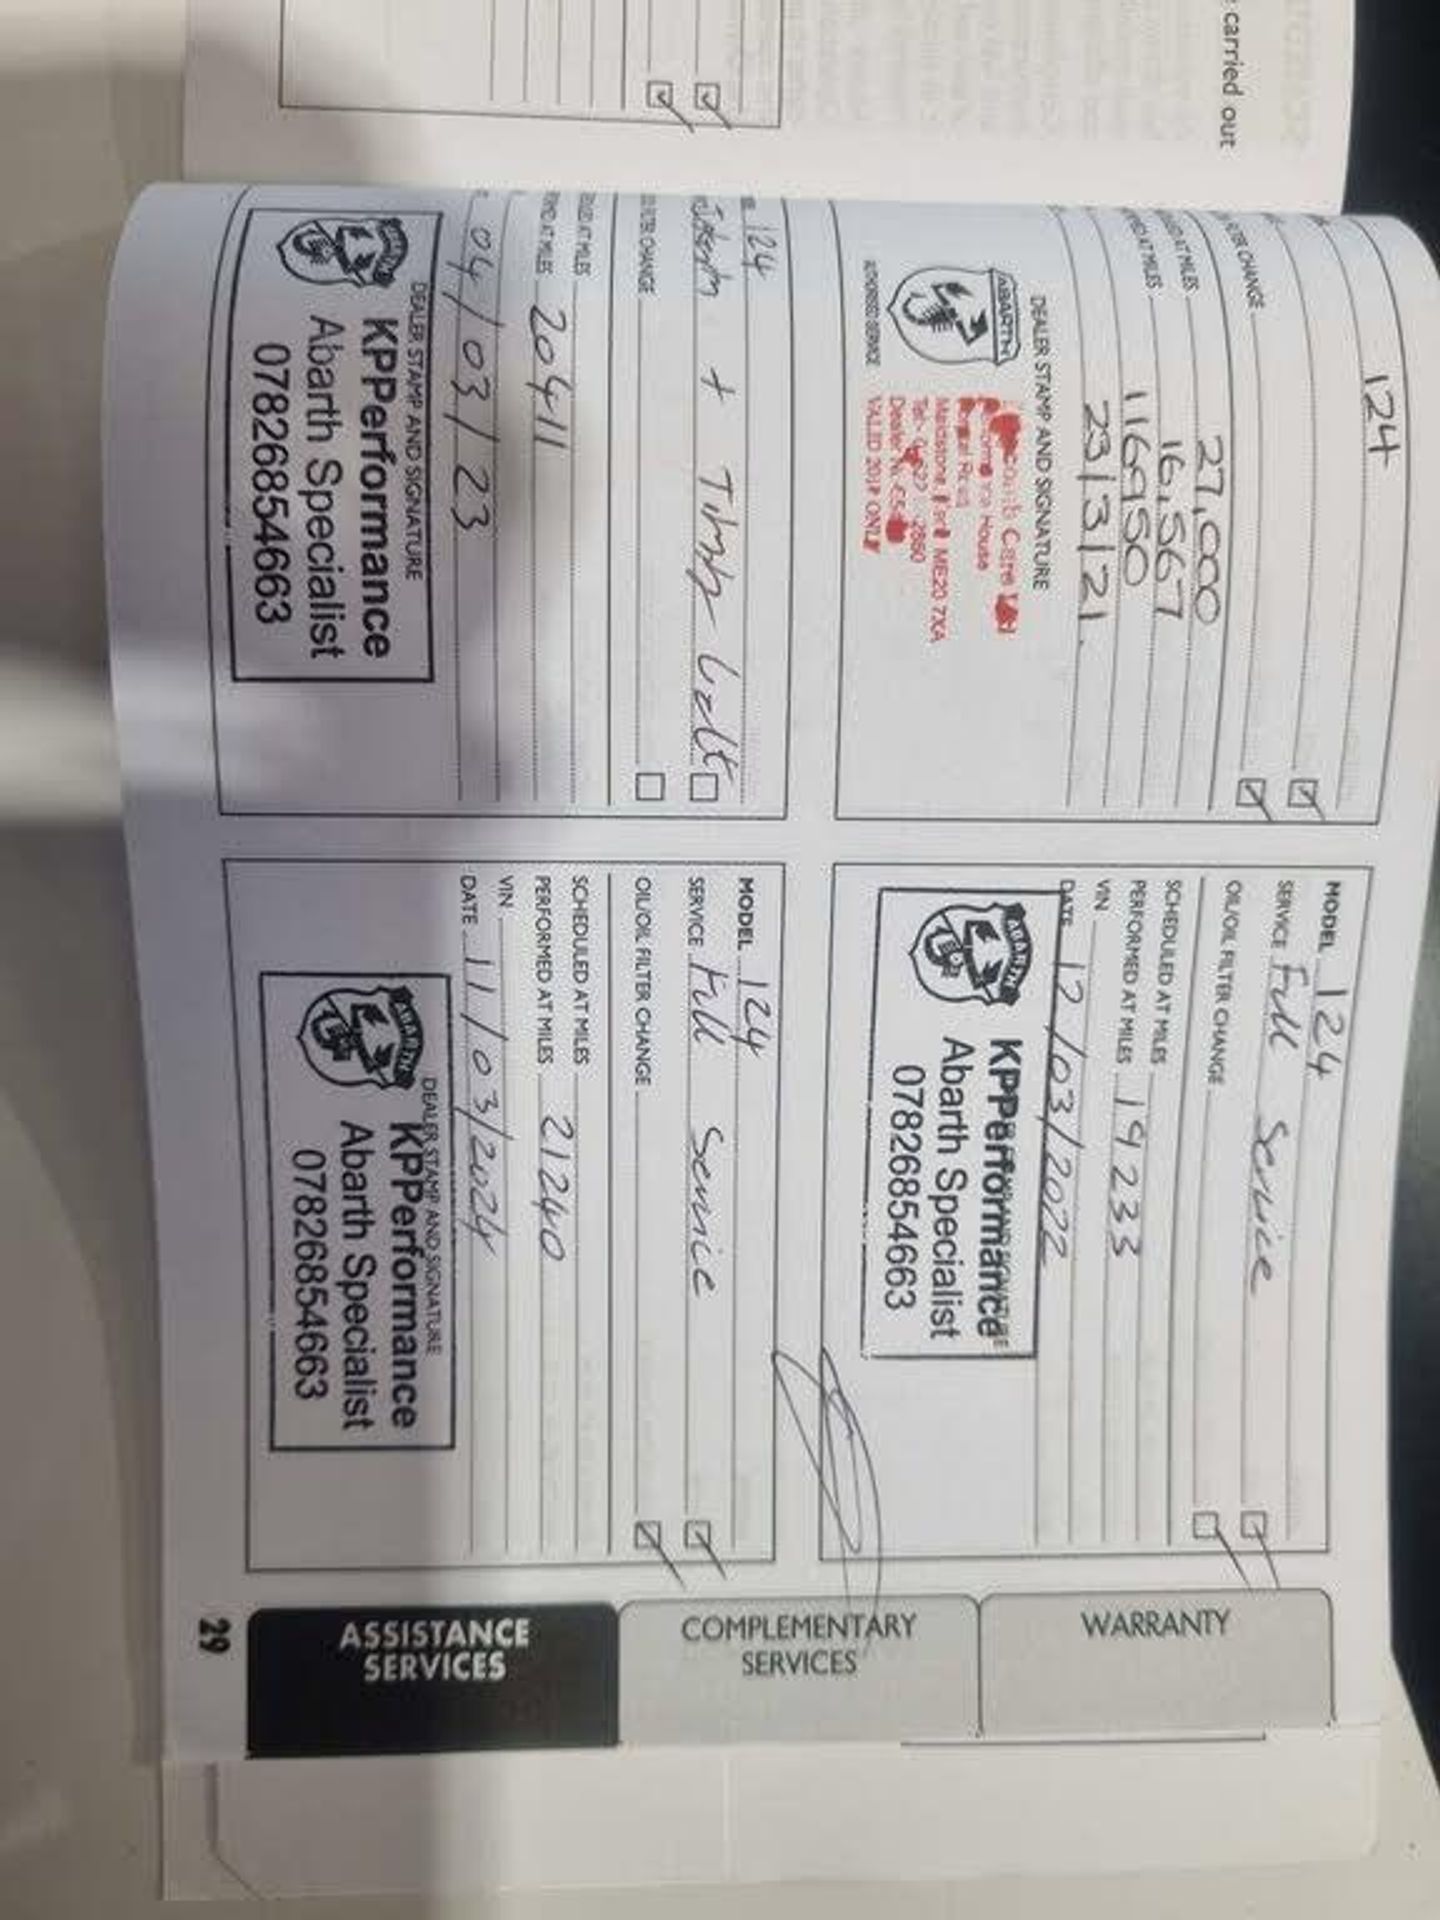 carried out
124
FILTER CHANGE
27,000
AT MILES 16,567
AT MILES
116950
23/3/21.
DEALER STAMP AND SIGNATURE
ABARTH
AUTHORISED SERVICE
House
Maidstone ME20 7XA
Tel:
Dealer
VALID 201 ONLY
MODEL 124
SERVICE Full Service
OIL/OIL FILTER CHANGE
SCHEDULED AT MILES
PERFORMED AT MILES 19233
VIN
DATE 12/03/2022
ABARTH
KPPerformance
Abarth Specialist
07826854663
124
+
FILTER CHANGE
AT MILES
AT MILES 20411
04/03/23
DEALER STAMP AND SIGNATURE
KPPerformance
Abarth Specialist
07826854663
MODEL 124
SERVICE Full Service
OIL/OIL FILTER CHANGE
SCHEDULED AT MILES
PERFORMED AT MILES 21240
VIN
DATE 11/03/2024
DEALER STAMP AND SIGNATURE
ABARTH
KPPerformance
Abarth Specialist
07826854663
WARRANTY
COMPLEMENTARY
SERVICES
ASSISTANCE
SERVICES
29